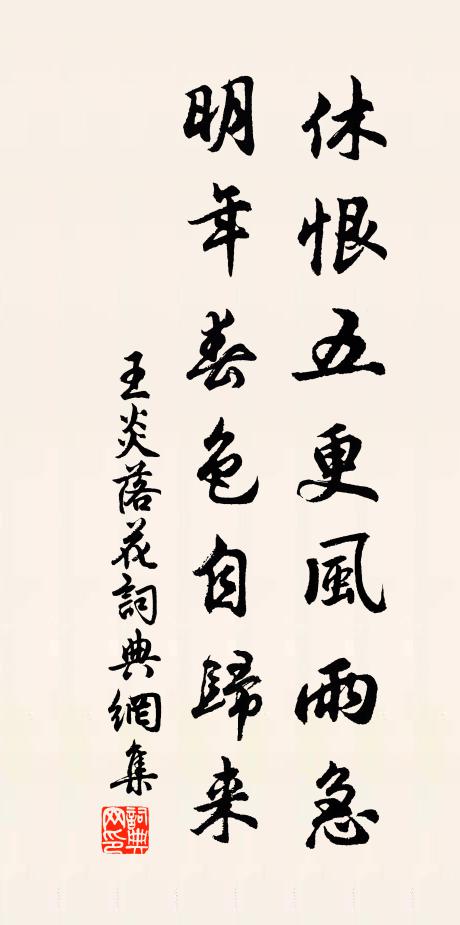 休恨五更風雨急
明年春色自歸来
王炎落花詞典網集
詞典網印